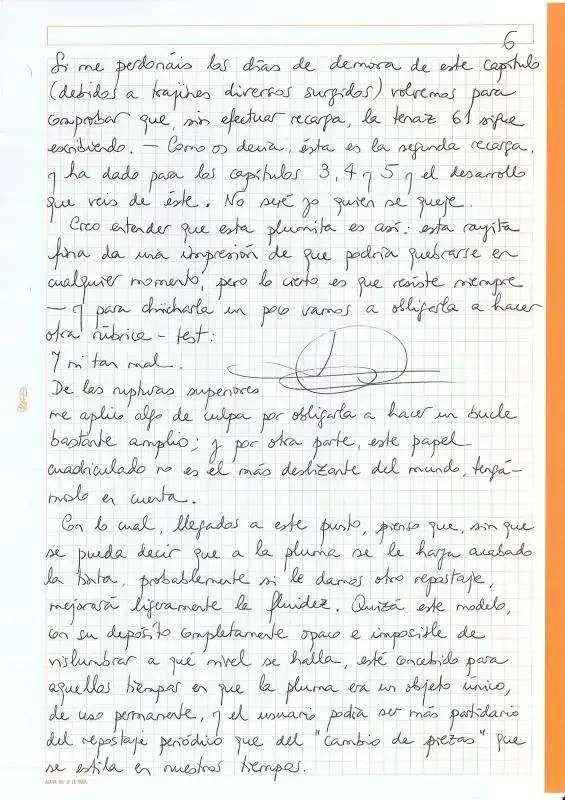 6
Si me perdonáis los días de demora de este capítulo
(debidos a trajines diversos surgidos) volvemos para
comprobar que, sin efectuar recarga, la tenaz 61 sigue
escribiendo. — Como os decía, ésta es la segunda recarga,
y ha dado para los capítulos 3, 4 y 5 y el desarrollo
que veis de éste. No seré yo quien se queje.
Creo entender que esta plumita es así: esta rayita
fina da una impresión de que podría quebrarse en
cualquier momento, pero lo cierto es que resiste siempre
— y para chincharla un poco vamos a obligarla a hacer
otra rúbrica - test:
Y ni tan mal.
De las rupturas superiores
me aplico algo de culpa por obligarla a hacer un bucle
bastante amplio; y por otra parte, este papel
cuadriculado no es el más deslizante del mundo, tengá-
moslo en cuenta.
Con lo cual, llegados a este punto, pienso que, sin que
se pueda decir que a la pluma se le haya acabado
la tinta, probablemente si le damos otro repostaje,
mejorará ligeramente la fluidez. Quizá este modelo,
con su depósito completamente opaco e imposible de
vislumbrar a qué nivel se halla, esté concebido para
aquellos tiempos en que la pluma era un objeto único,
de uso permanente, y el usuario podía ser más partidario
del repostaje periódico que del "cambio de piezas" que
se estila en nuestros tiempos.